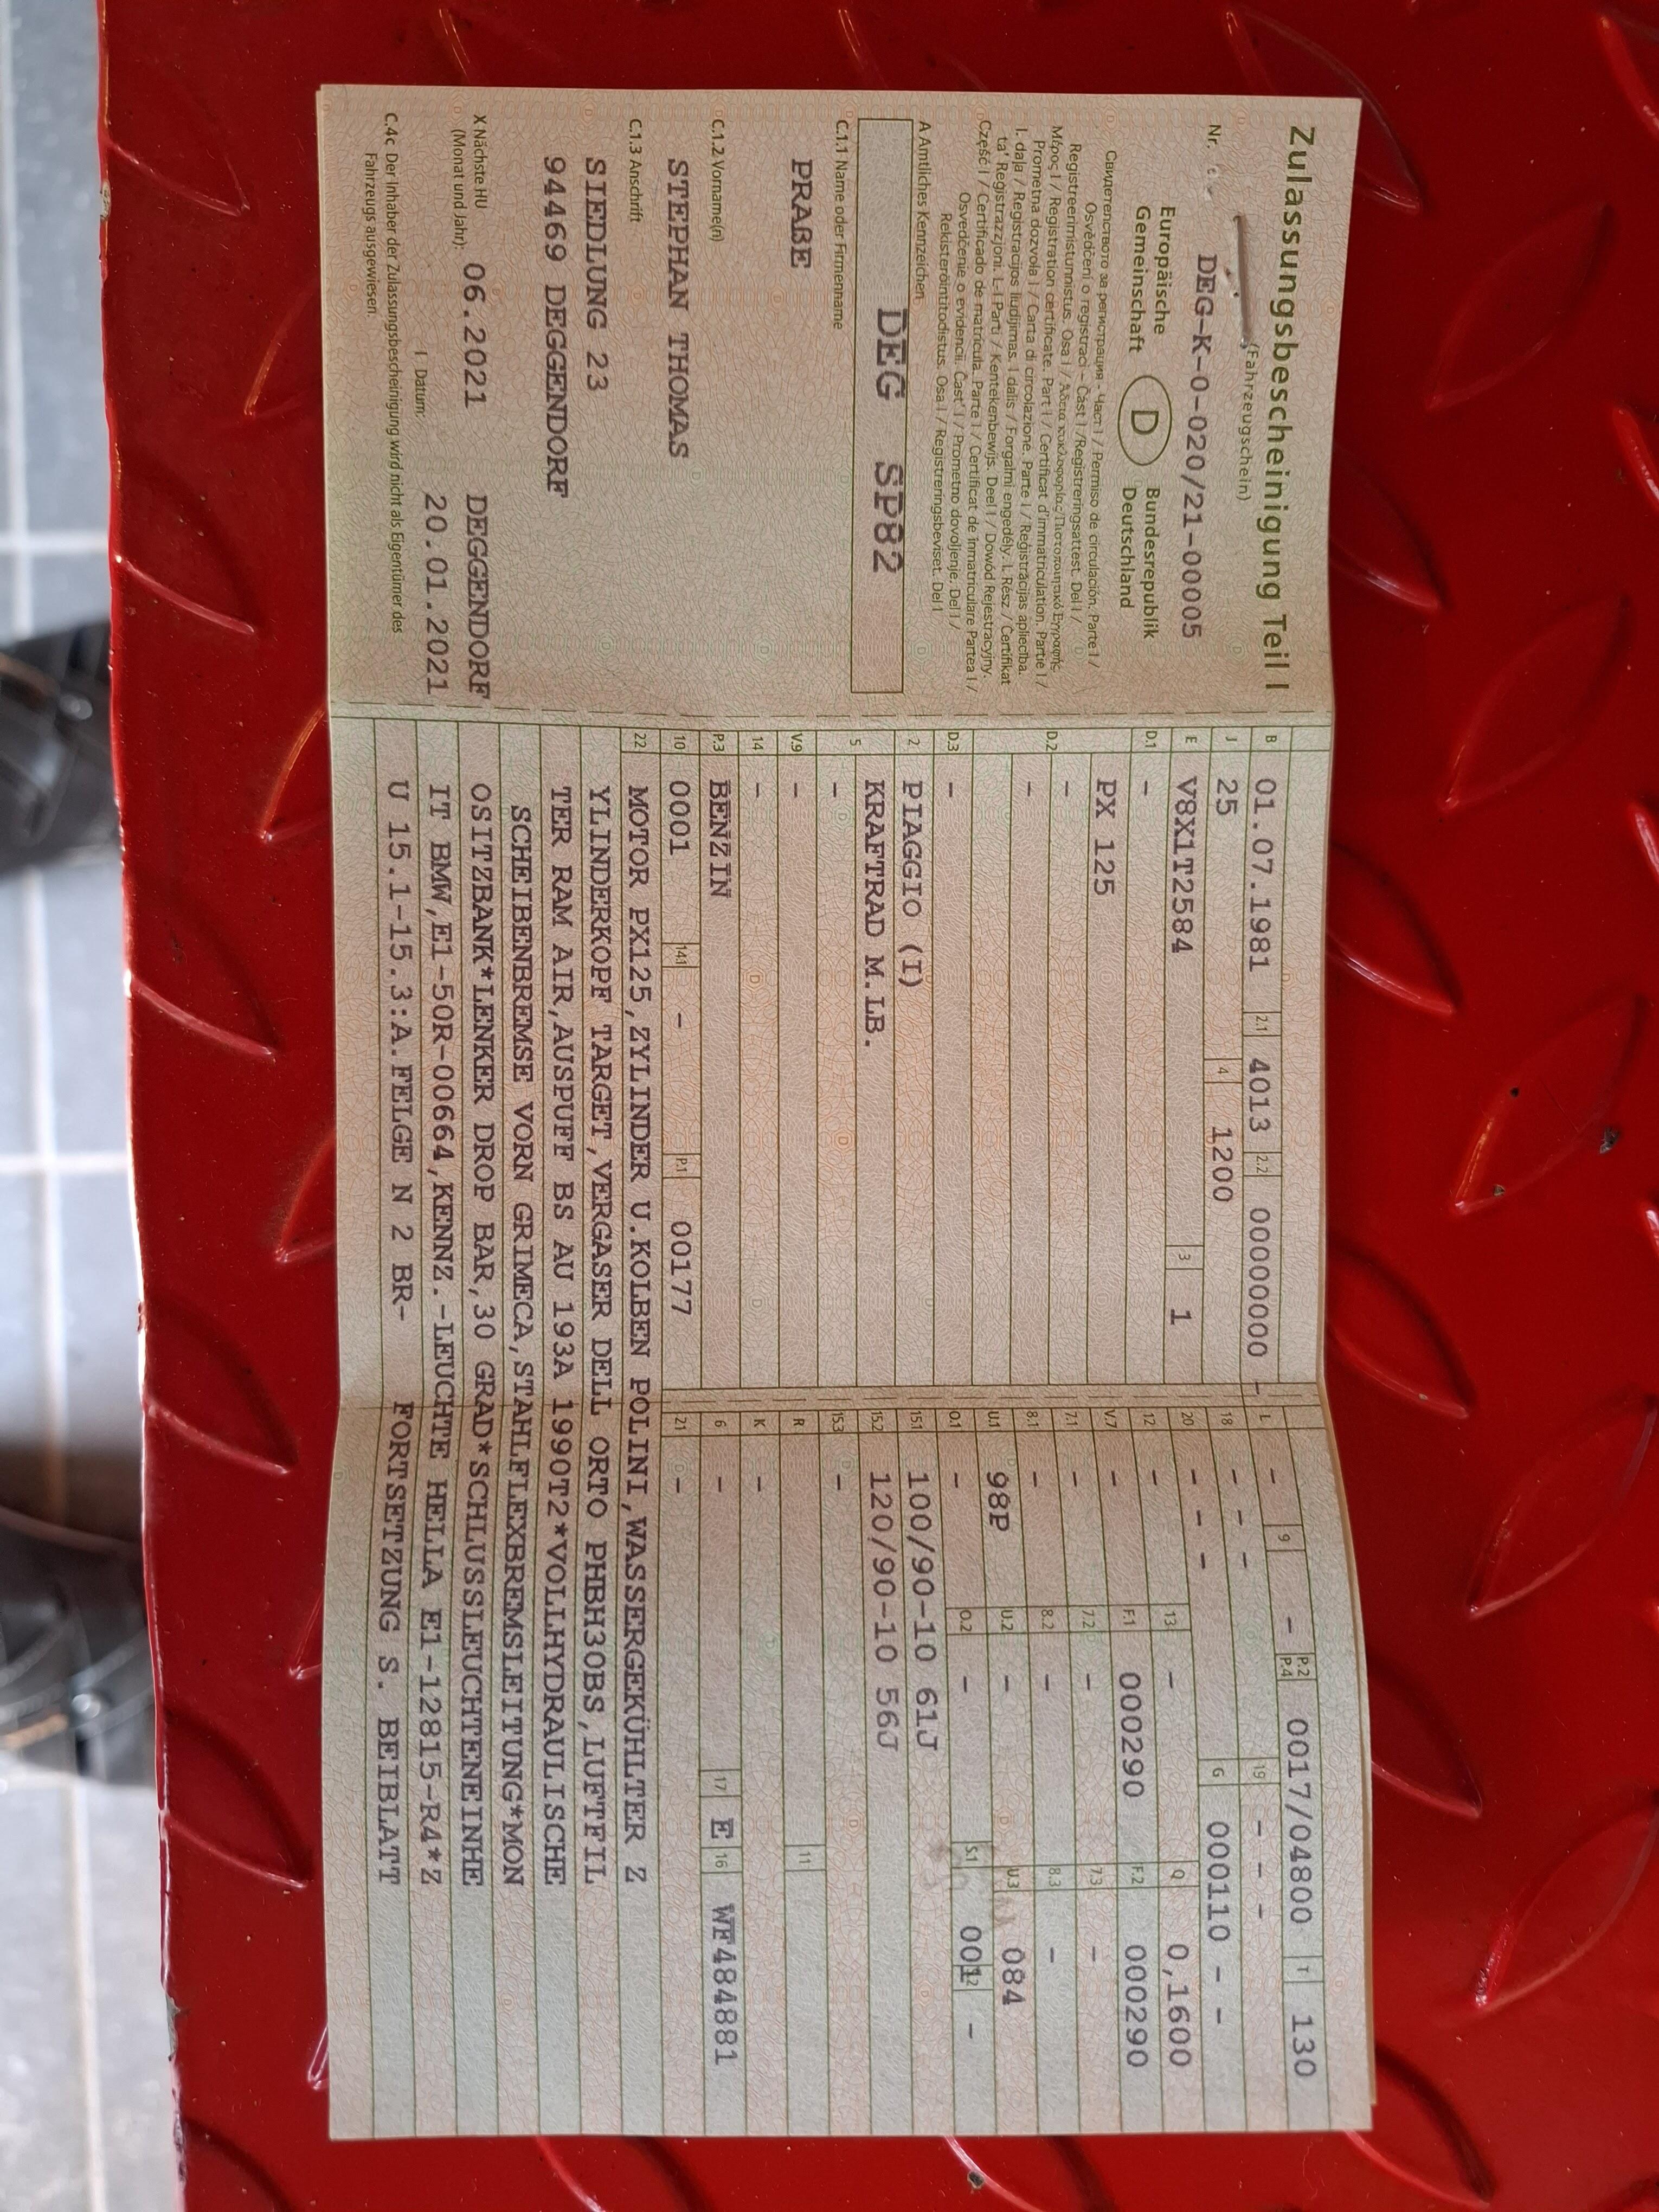 Zulassungsbescheinigung Teil I
(Fahrzeugschein)
Nr. DEG-K-0-020/21-00005
Europäische Gemeinschaft
D
Bundesrepublik Deutschland
Свидетелство за регистрация - Част I / Permiso de circulación. Parte I /
Osvědčení o registraci - Část I /Registreringsattest. Del I /
Registreerimistunnistus. Osa I / Άδεια κυκλοφορίας/Πιστοποιητικό Εγγραφής.
Μέρος I / Registration certificate. Part I / Certificat d'immatriculation. Partie I /
Prometna dozvola I / Carta di circolazione. Parte I / Reģistrācijas apliecība.
I. daļa / Registracijos liudijimas. I dalis / Forgalmi engedély. I. Rész / Ċertifikat
ta' Reġistrazzjoni. L-I Parti / Kentekenbewijs. Deel I / Dowód Rejestracyjny.
Część I / Certificado de matrícula. Parte I / Certificat de înmatriculare Partea I /
Osvedčenie o evidencii. Časť I / Prometno dovoljenje. Del I /
Rekisteröintitodistus. Osa I / Registreringsbeviset. Del I
A Amtliches Kennzeichen
DEG SP82
C.1.1 Name oder Firmenname
PRAßE
C.1.2 Vorname(n)
STEPHAN THOMAS
C.1.3 Anschrift
SIEDLUNG 23
94469 DEGGENDORF
X Nächste HU
(Monat und Jahr): 06.2021 DEGGENDORF
I Datum: 20.01.2021
C.4c Der Inhaber der Zulassungsbescheinigung wird nicht als Eigentümer des
Fahrzeugs ausgewiesen.
B 01.07.1981 2.1 4013 2.2 00000000 -
J 25 4 1200
E V8X1T2584 3 1
D.1 -
PX 125
D.2 -
-
D.3 -
2 PIAGGIO (I)
5 KRAFTRAD M.LB.
-
V.9 -
14 -
P.3 BENZIN
10 0001 14.1 - P.1 00177
L - 9 - P.2 P.4 0017/04800 T 130
18 - - 19 - - -
20 - - - G 000110 - -
12 - 13 - Q 0,1600
V.7 - F.1 000290 F.2 000290
7.1 - 7.2 - 7.3 -
8.1 - 8.2 - 8.3 -
U.1 98P U.2 - U.3 084
O.1 - O.2 - S.1 001 S.2 -
15.1 100/90-10 61J
15.2 120/90-10 56J
15.3 -
R 11
K -
6 - 17 E 16 WF484881
21 -
22 MOTOR PX125,ZYLINDER U.KOLBEN POLINI,WASSERGEKÜHLTER Z
YLINDERKOPF TARGET,VERGASER DELL ORTO PHBH30BS,LUFTFIL
TER RAM AIR,AUSPUFF BS AU 193A 1990T2*VOLLHYDRAULISCHE
SCHEIBENBREMSE VORN GRIMECA,STAHLFLEXBREMSLEITUNG*MON
OSITZBANK*LENKER DROP BAR,30 GRAD*SCHLUSSLEUCHTENEINHE
IT BMW,E1-50R-00664,KENNZ.-LEUCHTE HELLA E1-12815-R4*Z
U 15.1-15.3:A.FELGE N 2 BR- FORTSETZUNG S. BEIBLATT